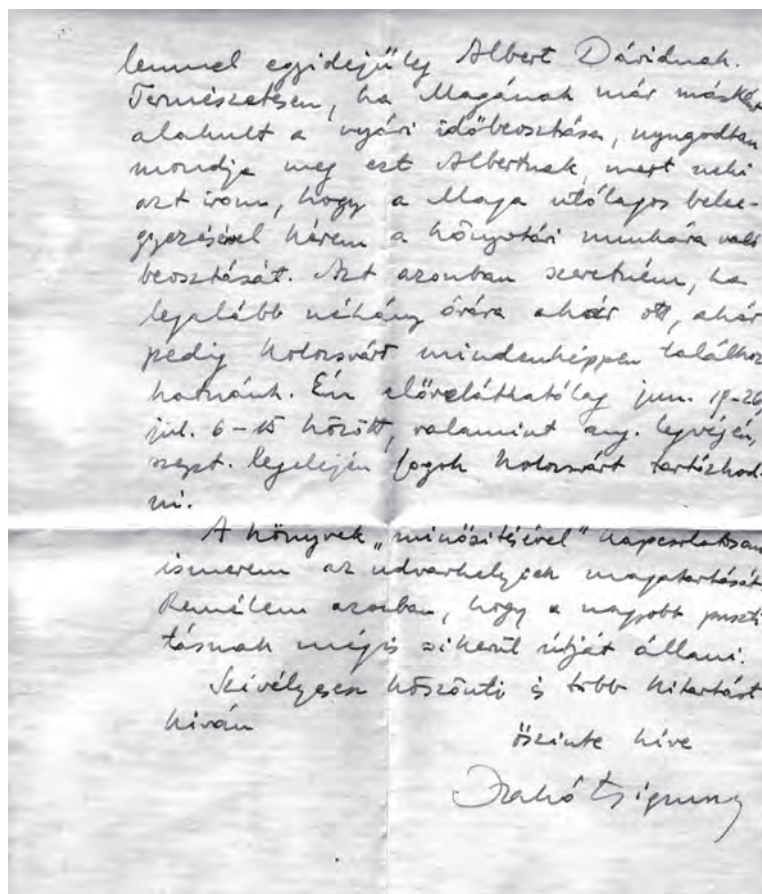 lemmel egyidejűleg Albert Dávidnak.
Természetesen, ha Magának már másként
alakult a nyári időbeosztása, nyugodtan
mondja meg ezt Albertnek, mert neki
azt írom, hogy a Maga utólagos bele-
egyezésével kérem a könyvtári munkára való
beosztását. Azt azonban szeretném, ha
legalább néhány órára akár ott, akár
pedig Kolozsvárt mindenképpen találkoz
hatnánk. Én előreláthatólag jun. 19-26,
jul. 6-15 között, valamint aug. legvégén,
szept. legelején fogok Kolozsvárt tartózkod-
ni.
A könyvek „minősítésével" kapcsolatosan
ismerem az udvarhelyiek magatartását.
Remélem azonban, hogy a nagyobb puszti
tásnak mégis sikerül útját állani.
Szívélyesen köszönti és több kitartást
kíván
őszinte híve
Jakó Zsigmond